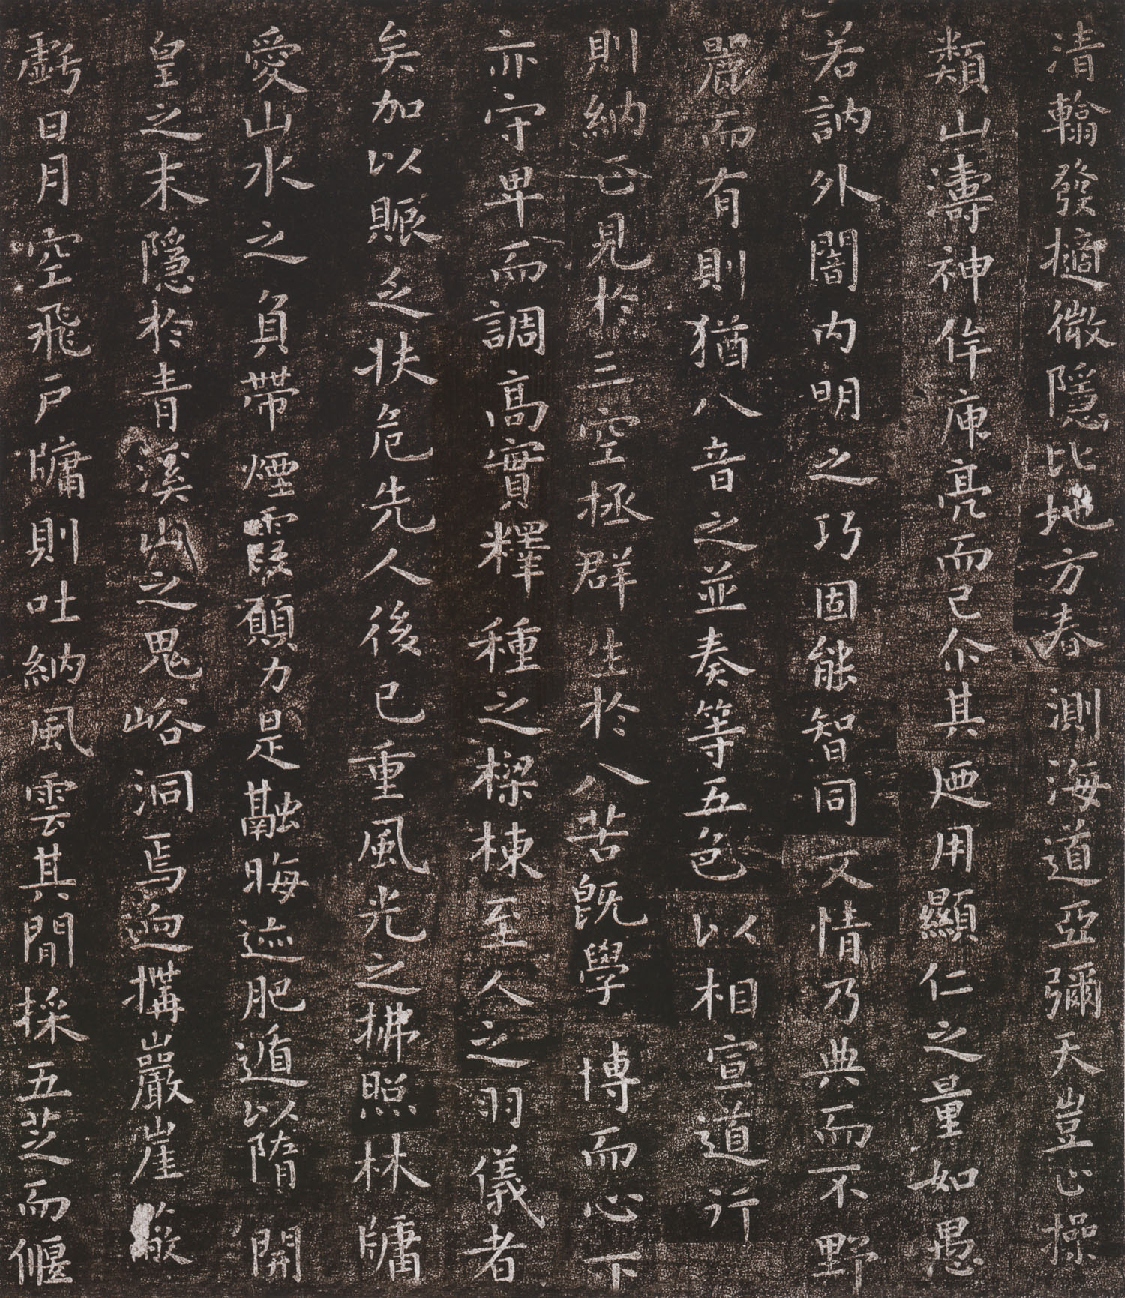 清翰發擿微隱比地方春測海道亞彌天豈止操
類山濤神侔庾亮而已尒其迺用顯仁之量如愚
若訥外闇內明之巧固能智同文情乃典而不野
麗而有則猶八音之並奏等五色以相宣道行
則納正見於三空拯群生於八苦旣學博而心下
亦守卑而調高實釋種之樑棟至人之羽儀者
矣加以賑乏扶危先人後己重風光之拂照林牖
愛山水之負帶煙霞願力是融晦迹肥遁以隋開
皇之末隱於青溪山之鬼峪洞焉迥構巖崖蔽
虧日月空飛戶牖則吐納風雲其間採五芝而偃